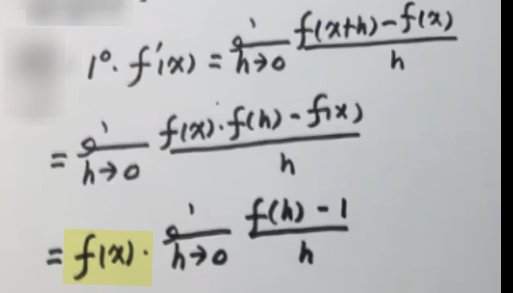 1°. f'(x) = lim h→0 f(x+h)-f(x) / h
= lim h→0 f(x)·f(h)-f(x) / h
= f(x)· lim h→0 f(h)-1 / h